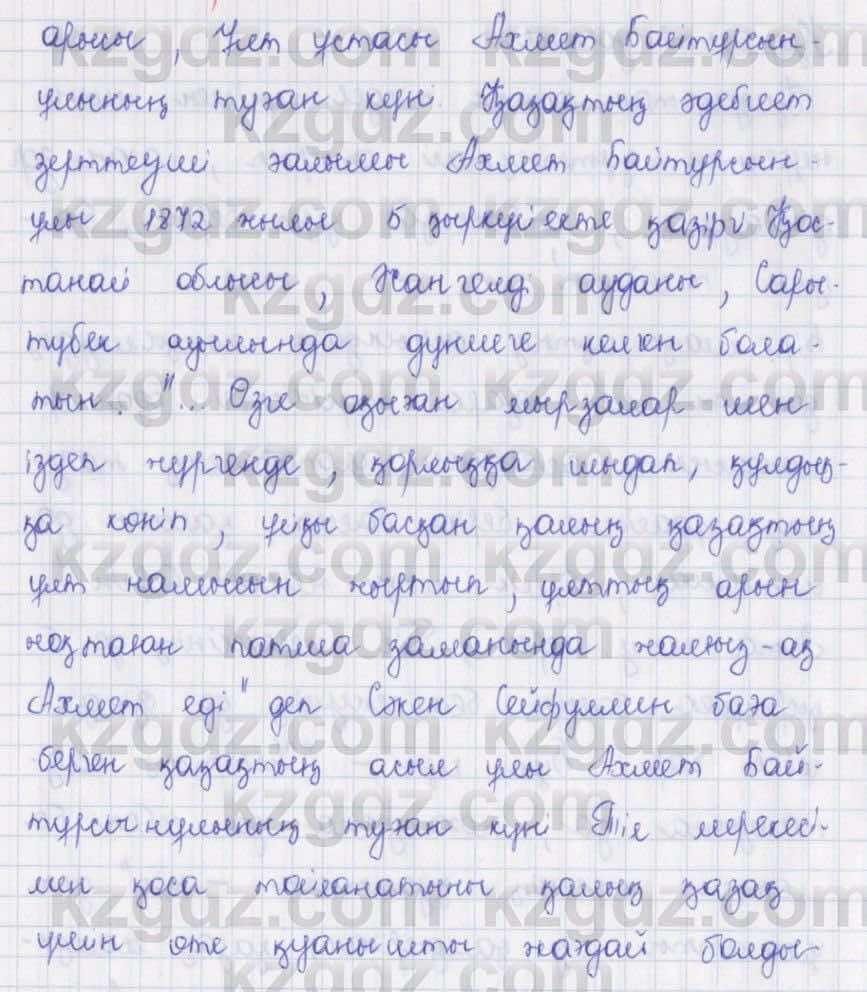 арысы, Ұлт ұстасы Ахмет Байтұрсын-
ұлының туған күні Қазақтың әдебиет
зерттеуші ғалымы Ахмет Байтұрсын-
ұлы 1872 жылы 5 қыркүйекте қазіргі Қос-
танай облысы, Жангелді ауданы, Сары-
түбек ауылында дүниеге келген бола-
тын. "... Өзге оқыған мырзалар шен
іздеп жүргенде, қорлыққа шыдап, құлдық-
қа көніп, ұйқы басқан қалың қазақтың
ұлт намысын жыртып, ұлттың арын
жоқтаған патша заманында жалғыз-ақ
Ахмет еді" деп Сәкен Сейфуллин баға
берген қазақтың асыл ұлы Ахмет Бай-
тұрсынұлының туған күні Тіл мерекесі-
мен қоса тойланатыны қалың қазақ
үшін өте қуанышты жағдай болды-
kzgdz.com